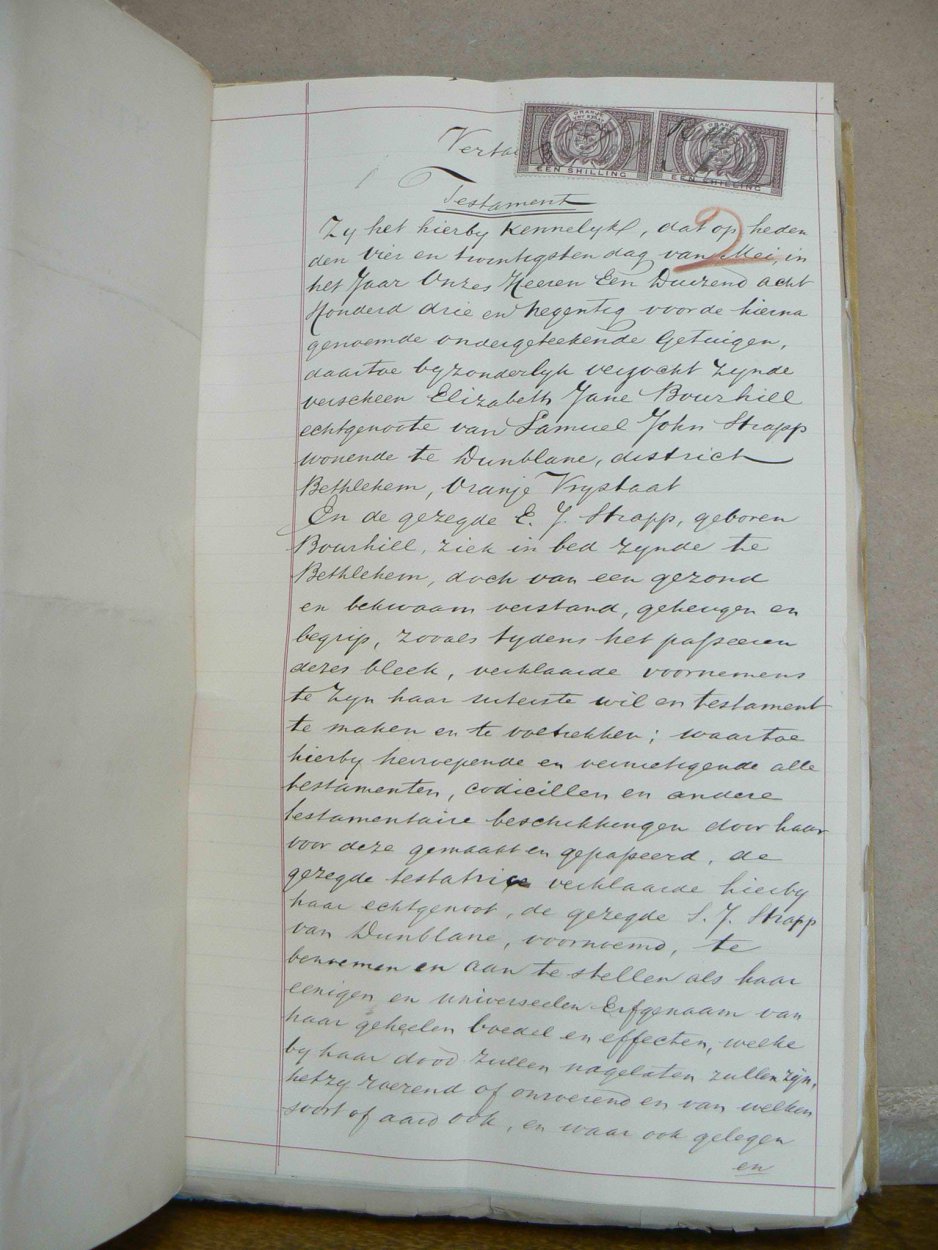 Testament
Zy het hierby Kennelyk, dat op heden
den vier en twintigsten dag van Mei, in
het Jaar Onzes Heeren Een Duizend acht
Honderd drie en Negentig voor de hierna
genoemde ondergeteekende Getuigen,
daartoe byzonderlyk verzocht Zynde
verscheen Elizabeth Jane Bourhill
echtgenoote van Samuel John Strapp
wonende te Dunblane, district
Bethlehem, Oranje Vrystaat
En de gezegde E. J. Strapp, geboren
Bourhill, ziek in bed zynde te
Bethlehem, doch van een gezond
en bekwaam verstand, geheugen en
begrip, zooals tydens het passeeren
dezes bleek, verklaarde voornemens
te Zyn haar uiterste wil en testament
te maken en te voltrekken; waartoe
hierby herroepende en vernietigende alle
testamenten, codicillen en andere
testamentaire beschikkingen door haar
voor deze gemaakt en gepasseerd, de
gezegde testatrice verklaarde hierby
haar echtgenoot, de gezegde S. J. Strapp
van Dunblane, voornoemd, te
benoemen en aan te stellen als haar
eenigen en universeelen Erfgenaam van
haar geheelen boedel en effecten, welke
by haar dood zullen nagelaten zullen zijn,
hetzy roerend of onroerend en van welken
soort of aard ook, en waar ook gelegen
en
EEN SHILLING
EEN SHILLING
2